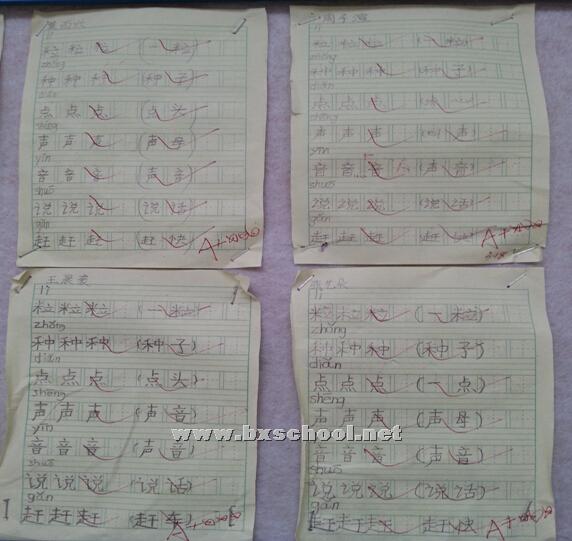 粒 粒 粒 (一粒)
zhǒng
种 种 种 (种子)
diǎn
点 点 点 (点头)
shēng
声 声 声 (声母)
yīn
音 音 音 (声音)
shuō
说 说 说 (说话)
gǎn
赶 赶 赶 (赶快)
A+
lì
粒 粒 粒 (一粒)
zhǒng
种 种 种 (种子)
diǎn
点 点 点
shēng
声 声 声
yīn
音 音 音 (声音)
shuō
说 说 说 (说话)
gǎn
赶 赶 赶
A+
lì
粒 粒 粒 (一粒)
zhǒng
种 种 种 (种子)
diǎn
点 点 点 (点头)
shēng
声 声 声 (声音)
yīn
音 音 音 (声音)
shuō
说 说 说 (说话)
gǎn
赶 赶 赶 (赶车)
A+
lì
粒 粒 粒 (一粒)
zhǒng
种 种 种 (种子)
diǎn
点 点 点 (一点)
shēng
声 声 声 (声母)
yīn
音 音 音 (声音)
shuō
说 说 说 (说话)
gǎn
赶 赶 赶 (赶快)
A+
www.bxschool.net